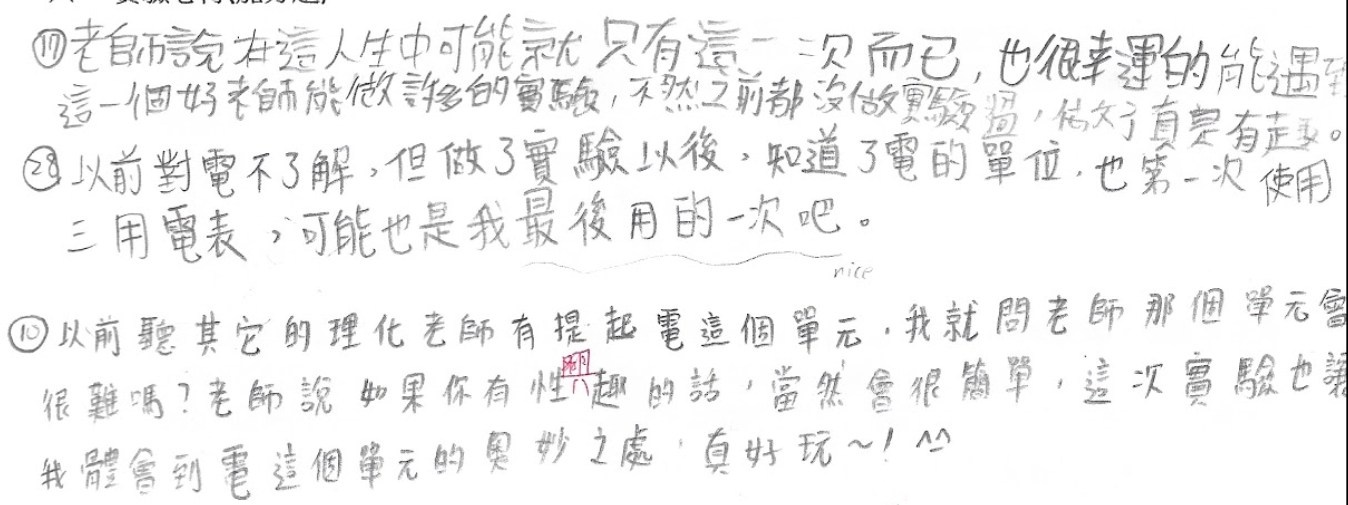 ⑰老師說在這人生中可能就只有這一次而已,也很幸運的能遇到
這一個好老師能做許多的實驗,不然之前都沒做實驗過,做了真是有趣。
㉘以前對電不了解,但做了實驗以後,知道了電的單位,也第一次使用
三用電表,可能也是我最後用的一次吧。
nice
⑩以前聽其它的理化老師有提起電這個單元,我就問老師那個單元會
很難嗎?老師說如果你有性趣的話,當然會很簡單,這次實驗也讓
興
我體會到電這個單元的奧妙之處,真好玩~!^^